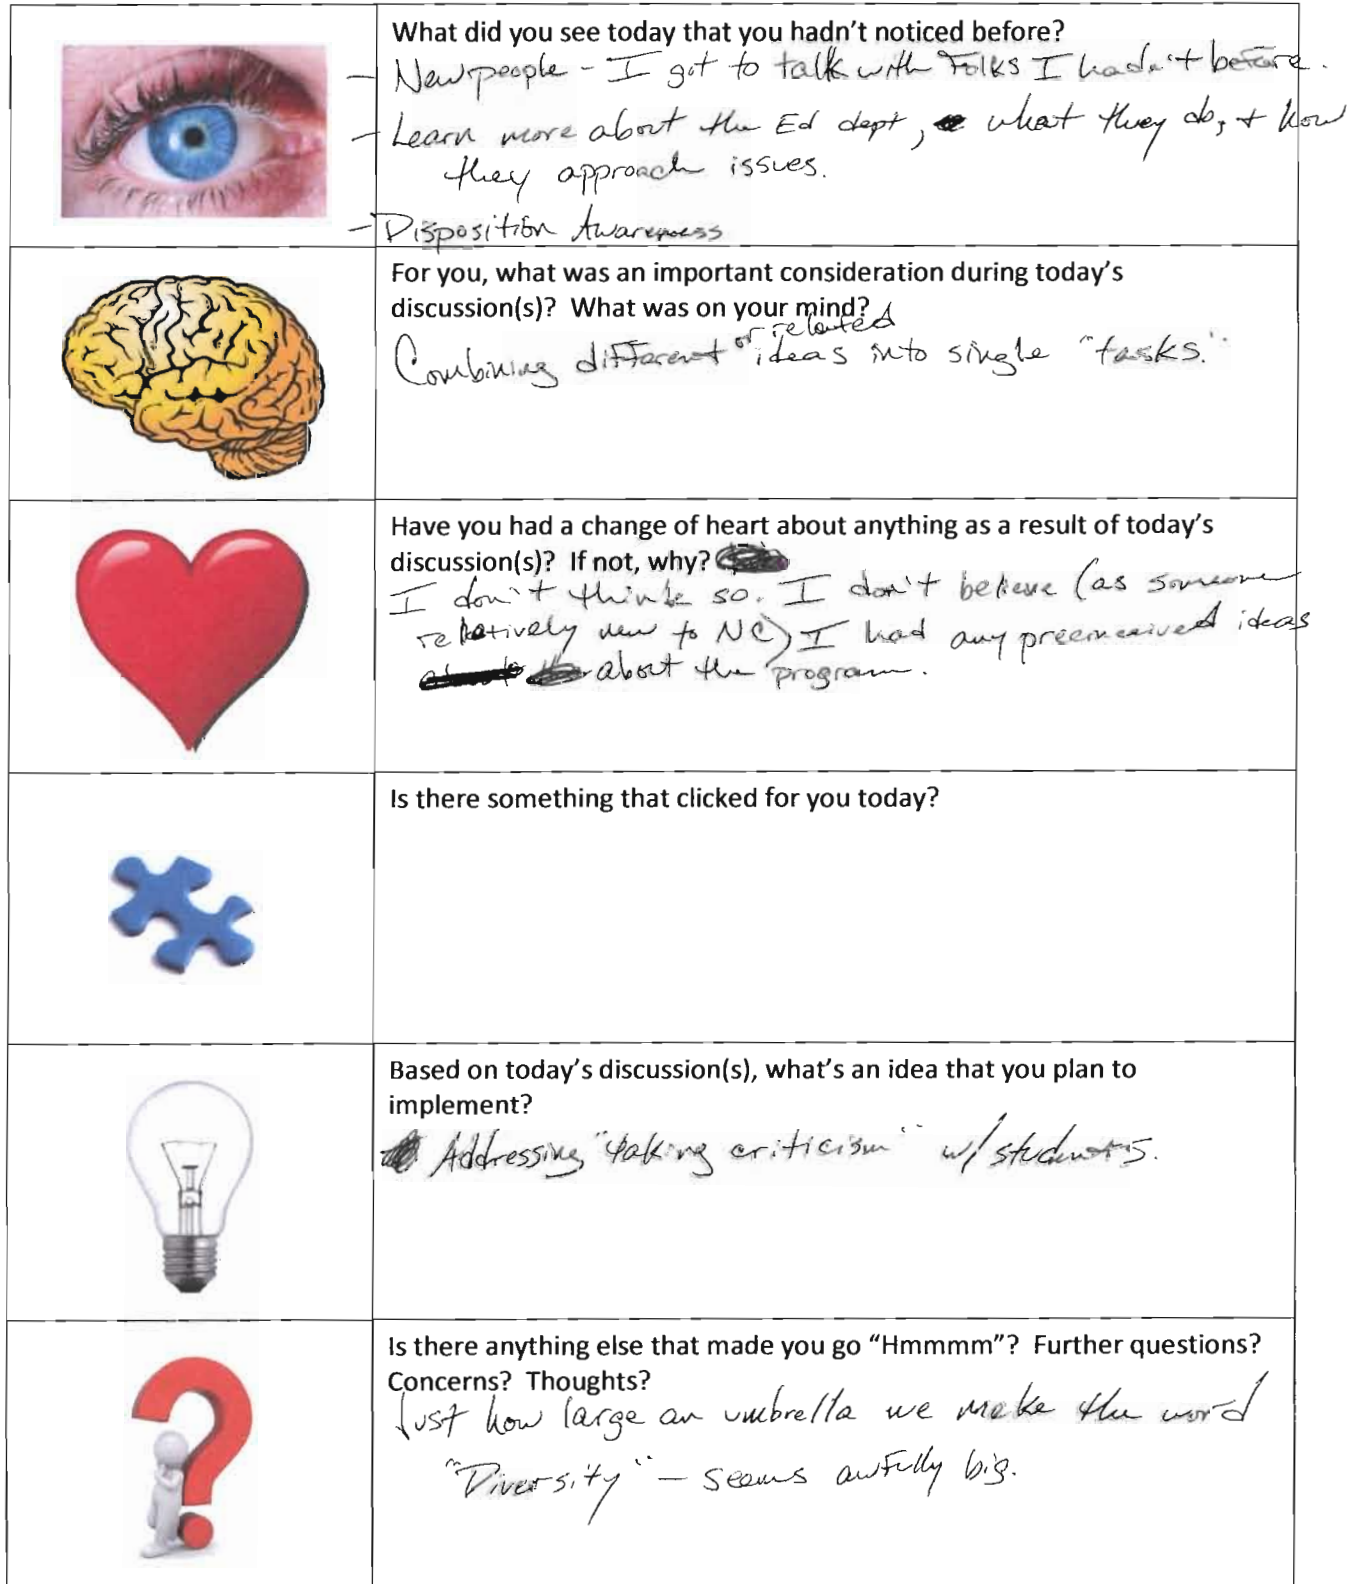 What did you see today that you hadn't noticed before?
- New people - I got to talk with Folks I hadn't before.
- Learn more about the Ed dept, what they do, + how
they approach issues.
- Disposition Awareness
For you, what was an important consideration during today's
discussion(s)? What was on your mind?
or related
Combining different ideas into single "tasks."
Have you had a change of heart about anything as a result of today's
discussion(s)? If not, why?
I don't think so. I don't believe (as someone
relatively new to NC) I had any preconceived ideas
about the program.
Is there something that clicked for you today?
Based on today's discussion(s), what's an idea that you plan to
implement?
Addressing "taking criticism" w/ students.
Is there anything else that made you go “Hmmmm”? Further questions?
Concerns? Thoughts?
Just how large an umbrella we make the word
"Diversity" - seems awfully big.